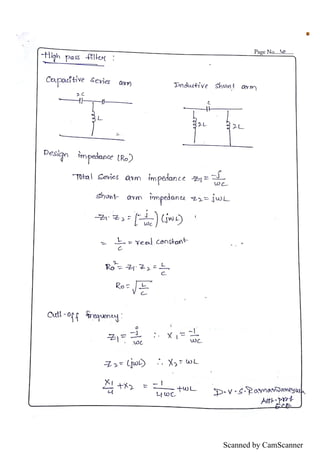 Page No. 30
High pass filter :
Capacitive Series arm
Inductive shunt arm
2C
C
L
2L
2L
Design impedance (R₀)
Total Series arm impedance Z₁ = -j/ωC
shunt arm impedance Z₂ = jωL
Z₁ · Z₂ = (-j/ωC) (jωL)
= L/C = real constant
R₀² = Z₁ · Z₂ = L/C
R₀ = √(L/C)
Cutt-off frequency :
Z₁ = -j/ωC ∴ X₁ = -1/ωC
Z₂ = (jωL) ∴ X₂ = ωL
X₁/4 + X₂ = -1/4ωC + ωL
D.V.S.
ECE
Scanned by CamScanner